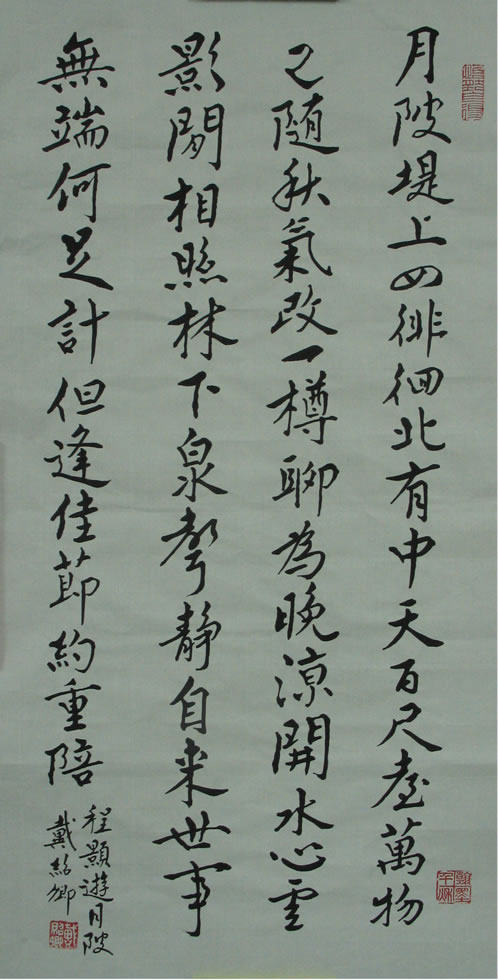 月陂堤上四徘徊北有中天百尺臺萬物
已随秋氣改一樽聊為晚涼開水心雲
影閒相照林下泉聲静自来世事
無端何足計但逢佳節約重陪
程顥遊月陂
戴紹卿